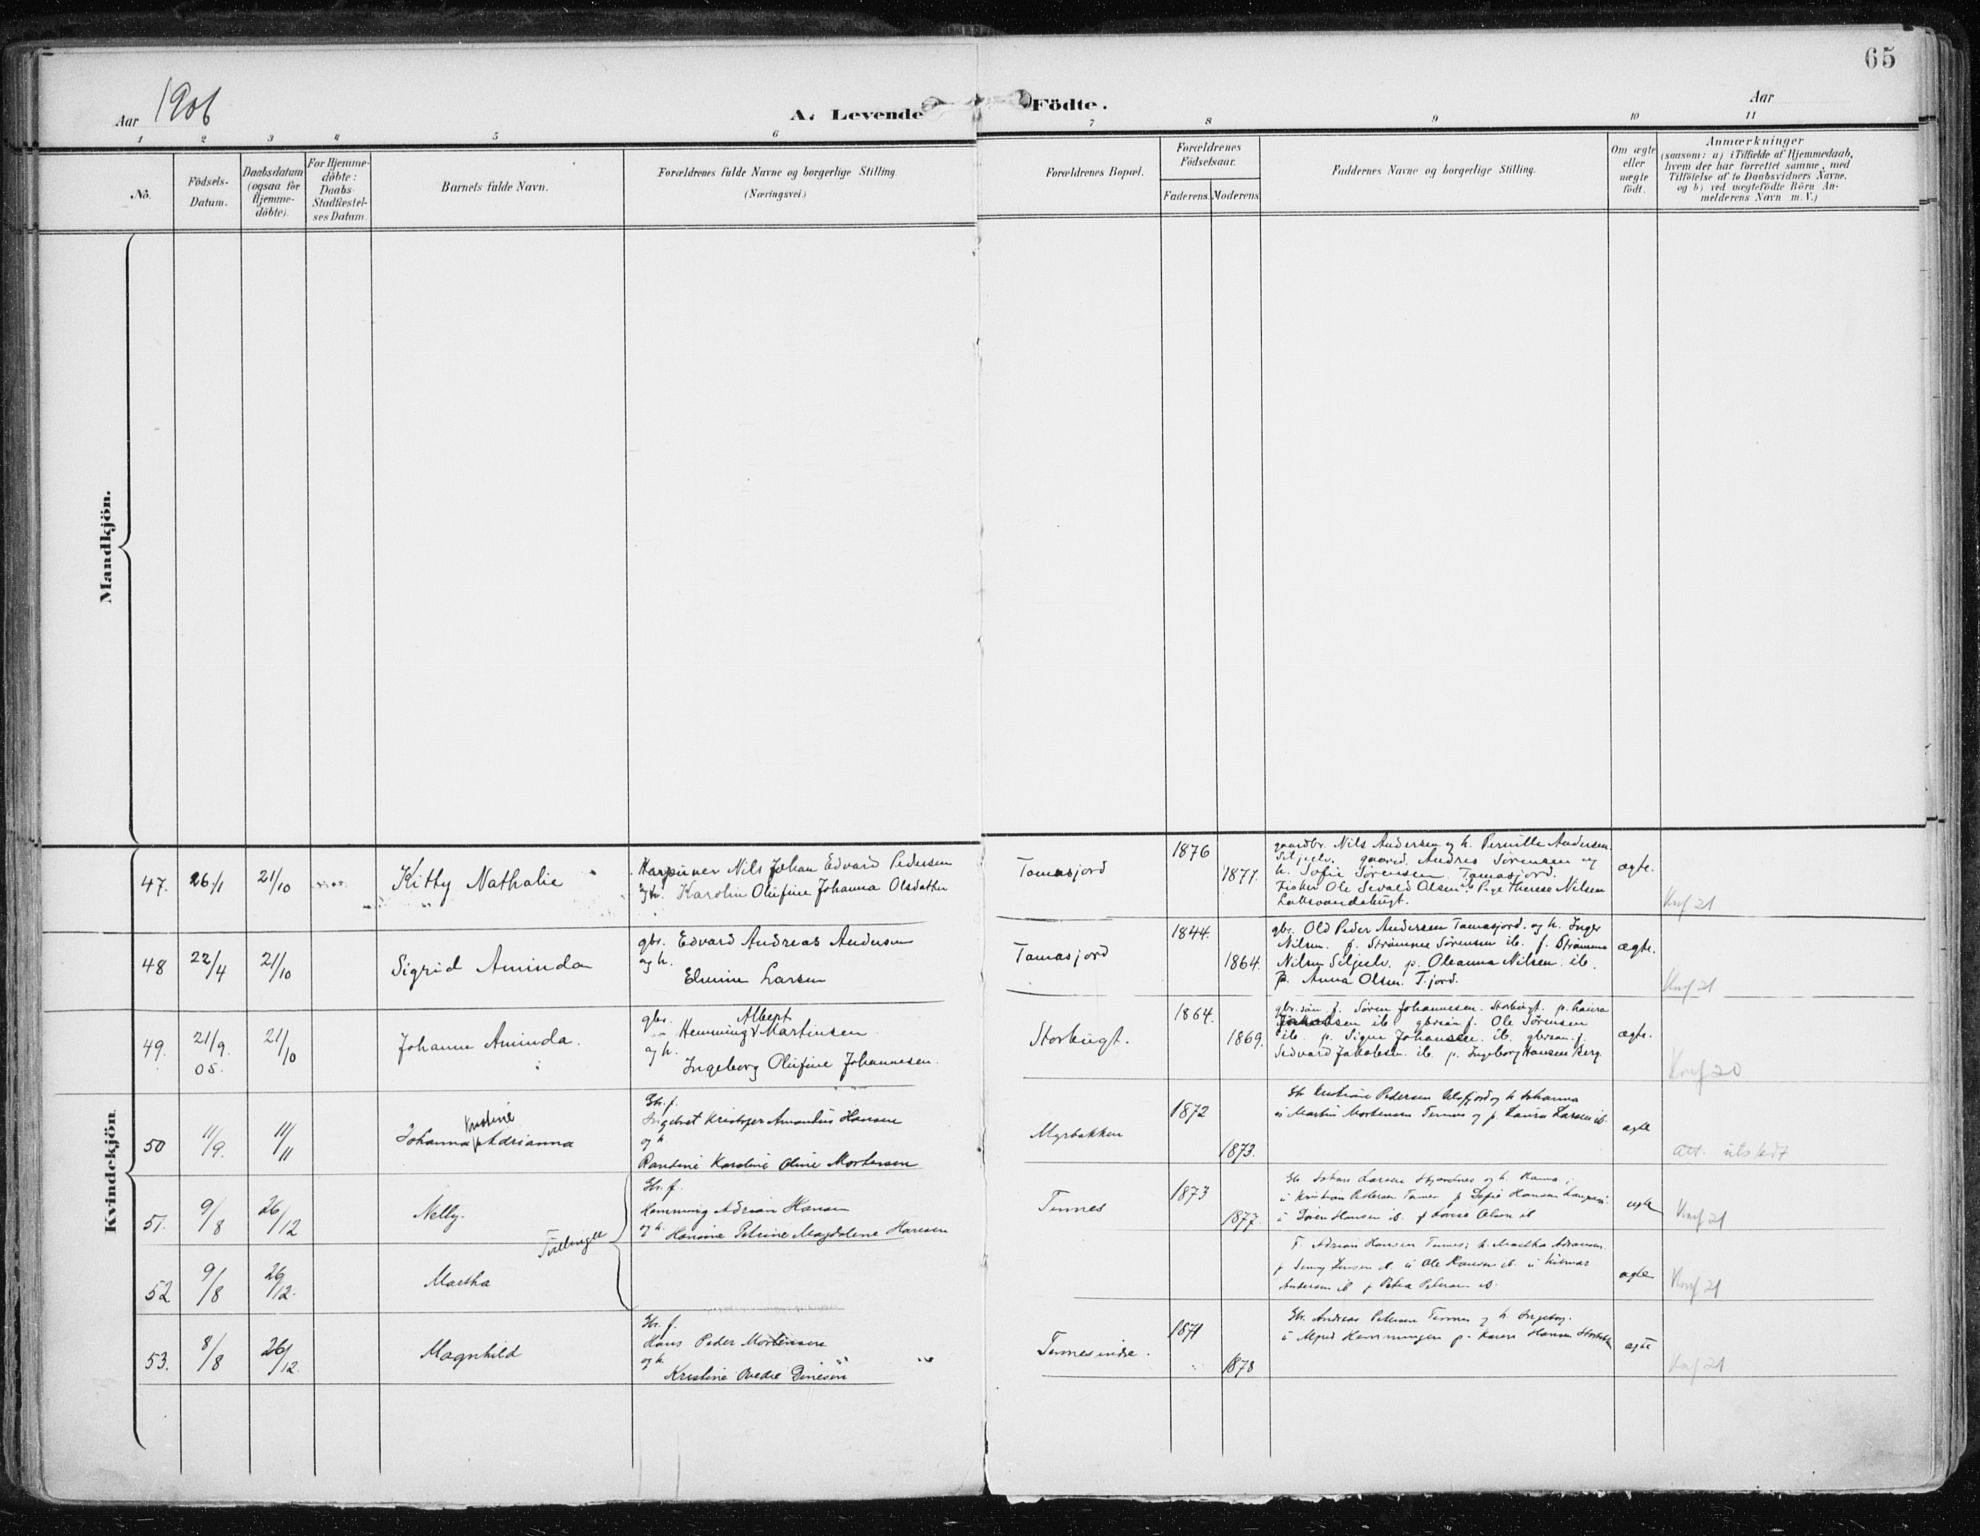 65
Aar 1906
A. Levende Födte.
Aar
1 2 3 4 5 6 7 8 9 10 11
No.
Födsels-Datum.
Daabsdatum (ogsaa for Hjemme-döbte).
For Hjemme-döbte: Daabs-Stadfæstel-ses Datum.
Barnets fulde Navn.
Forældrenes fulde Navne og borgerlige Stilling.
(Næringsvei.)
Forældrenes Bopæl.
Forældrenes Födselsaar.
Faderens. Moderens.
Faddernes Navne og borgerlige Stilling.
Om ægte eller uægte födt.
Anmærkninger
(saasom: a) i Tilfælde af Hjemmedaab,
hvem der har forrettet samme, med
Tilföielse af to Daabsvidners Navne.
og b) ved uægtefödte Börn An-
melderens Navn m. V.)
Mandkjön.
Kvindekjön
47. 26/1 21/10 Kitty Nathalie
Harpuner Nils Johan Edvard Pedersen
og h. Karolin Olufine Johanna Olsdatter
Tomasjord 1876 1877.
gaardbr. Nils Andersen og h. Pernille Andersen
Seljelv. gaard. Andreas Sørensen og
h. Sofie Sørensen. Tomasjord.
Fisker Ole Sevald Olsen ib. Pige Therese Nilsen
Laksvandsbugt.
ægte.
Knf 21
48 22/4 21/10 Sigrid Aminda
gbr. Edvard Andreas Andersen
og h.
Elmine Larsen
Tomasjord 1844. 1864.
gbr. Old Peder Andersen Tomasjord. og h. Inger
Nilsen. f. Strømme Sørensen ib. f. Strømme
Nilsen Seljelv. p. Oleanna Nilsen. ib.
p. Anna Olsen. T.jord.
ægte.
Knf 21
49. 21/9. 05. 21/10 Johanne Aminda.
gbr. Albert
Hemming Martinsen
og h.
Ingeborg Olufine Johannesen.
Storbugt. 1864. 1869.
gbr.søn f. Søren Johannesen. Storbugt. p. Laura
Jakobsen ib gbrsøn f. Ole Sørensen
ib. p. Signe Johansen. ib. gbrsøn. f.
Sedvard Jakobsen. ib. p. Ingeborg Hansen Berg.
ægte.
Konf 20
50 11/9. 11/11 Kristine
Johanna Adrianna
Gbr. f.
Ingebret Kristofer Amandus Hansen
og h
Randine Karoline Oline Mortensen
Myrbakken 1872 1873.
Gbr Kristine Pedersen og h Johanna
u Martin Mortensen Tennes og p Laura Larsen ib.
ægte
att. utstedt
51. 9/8 26/12 Nelly.
Tvillinger
Gbr. f.
Hemming Adrian Hansen
og h. Hansine Petrine Magdalene Hansen
Tennes 1873 1877.
Gbr Johan Larsen og h. Hanna,
u Kristian Petersen Tennes p Sofie Hansen
u Søren Hansen ib. p Louise Olsen ib
ægte
Knf 21
52 9/8 26/12. Martha
F. Adrian Hansen Tennes, h. Martha Adriansen
p Jenny Jensen ib. u Ole Hansen ib. u Hilmar
Andersen ib p Petra Petersen ib.
ægte
Knf 21
53. 8/8 26/12. Magnhild
Gbr. f.
Hans Peder Mortensen
og h.
Kristine Bredre Dinesen
Tennes indre. 1871 1878
Gbr. Andreas Petersen Tennes og h. Ingeborg.
u Alfred Hemmingsen p. Karen Hansen
ægte
Knf 21